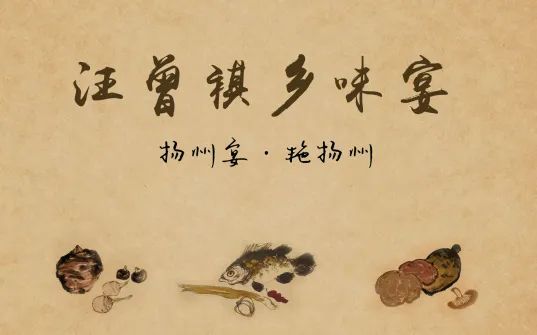 汪曾祺乡味宴
扬州宴·艳扬州